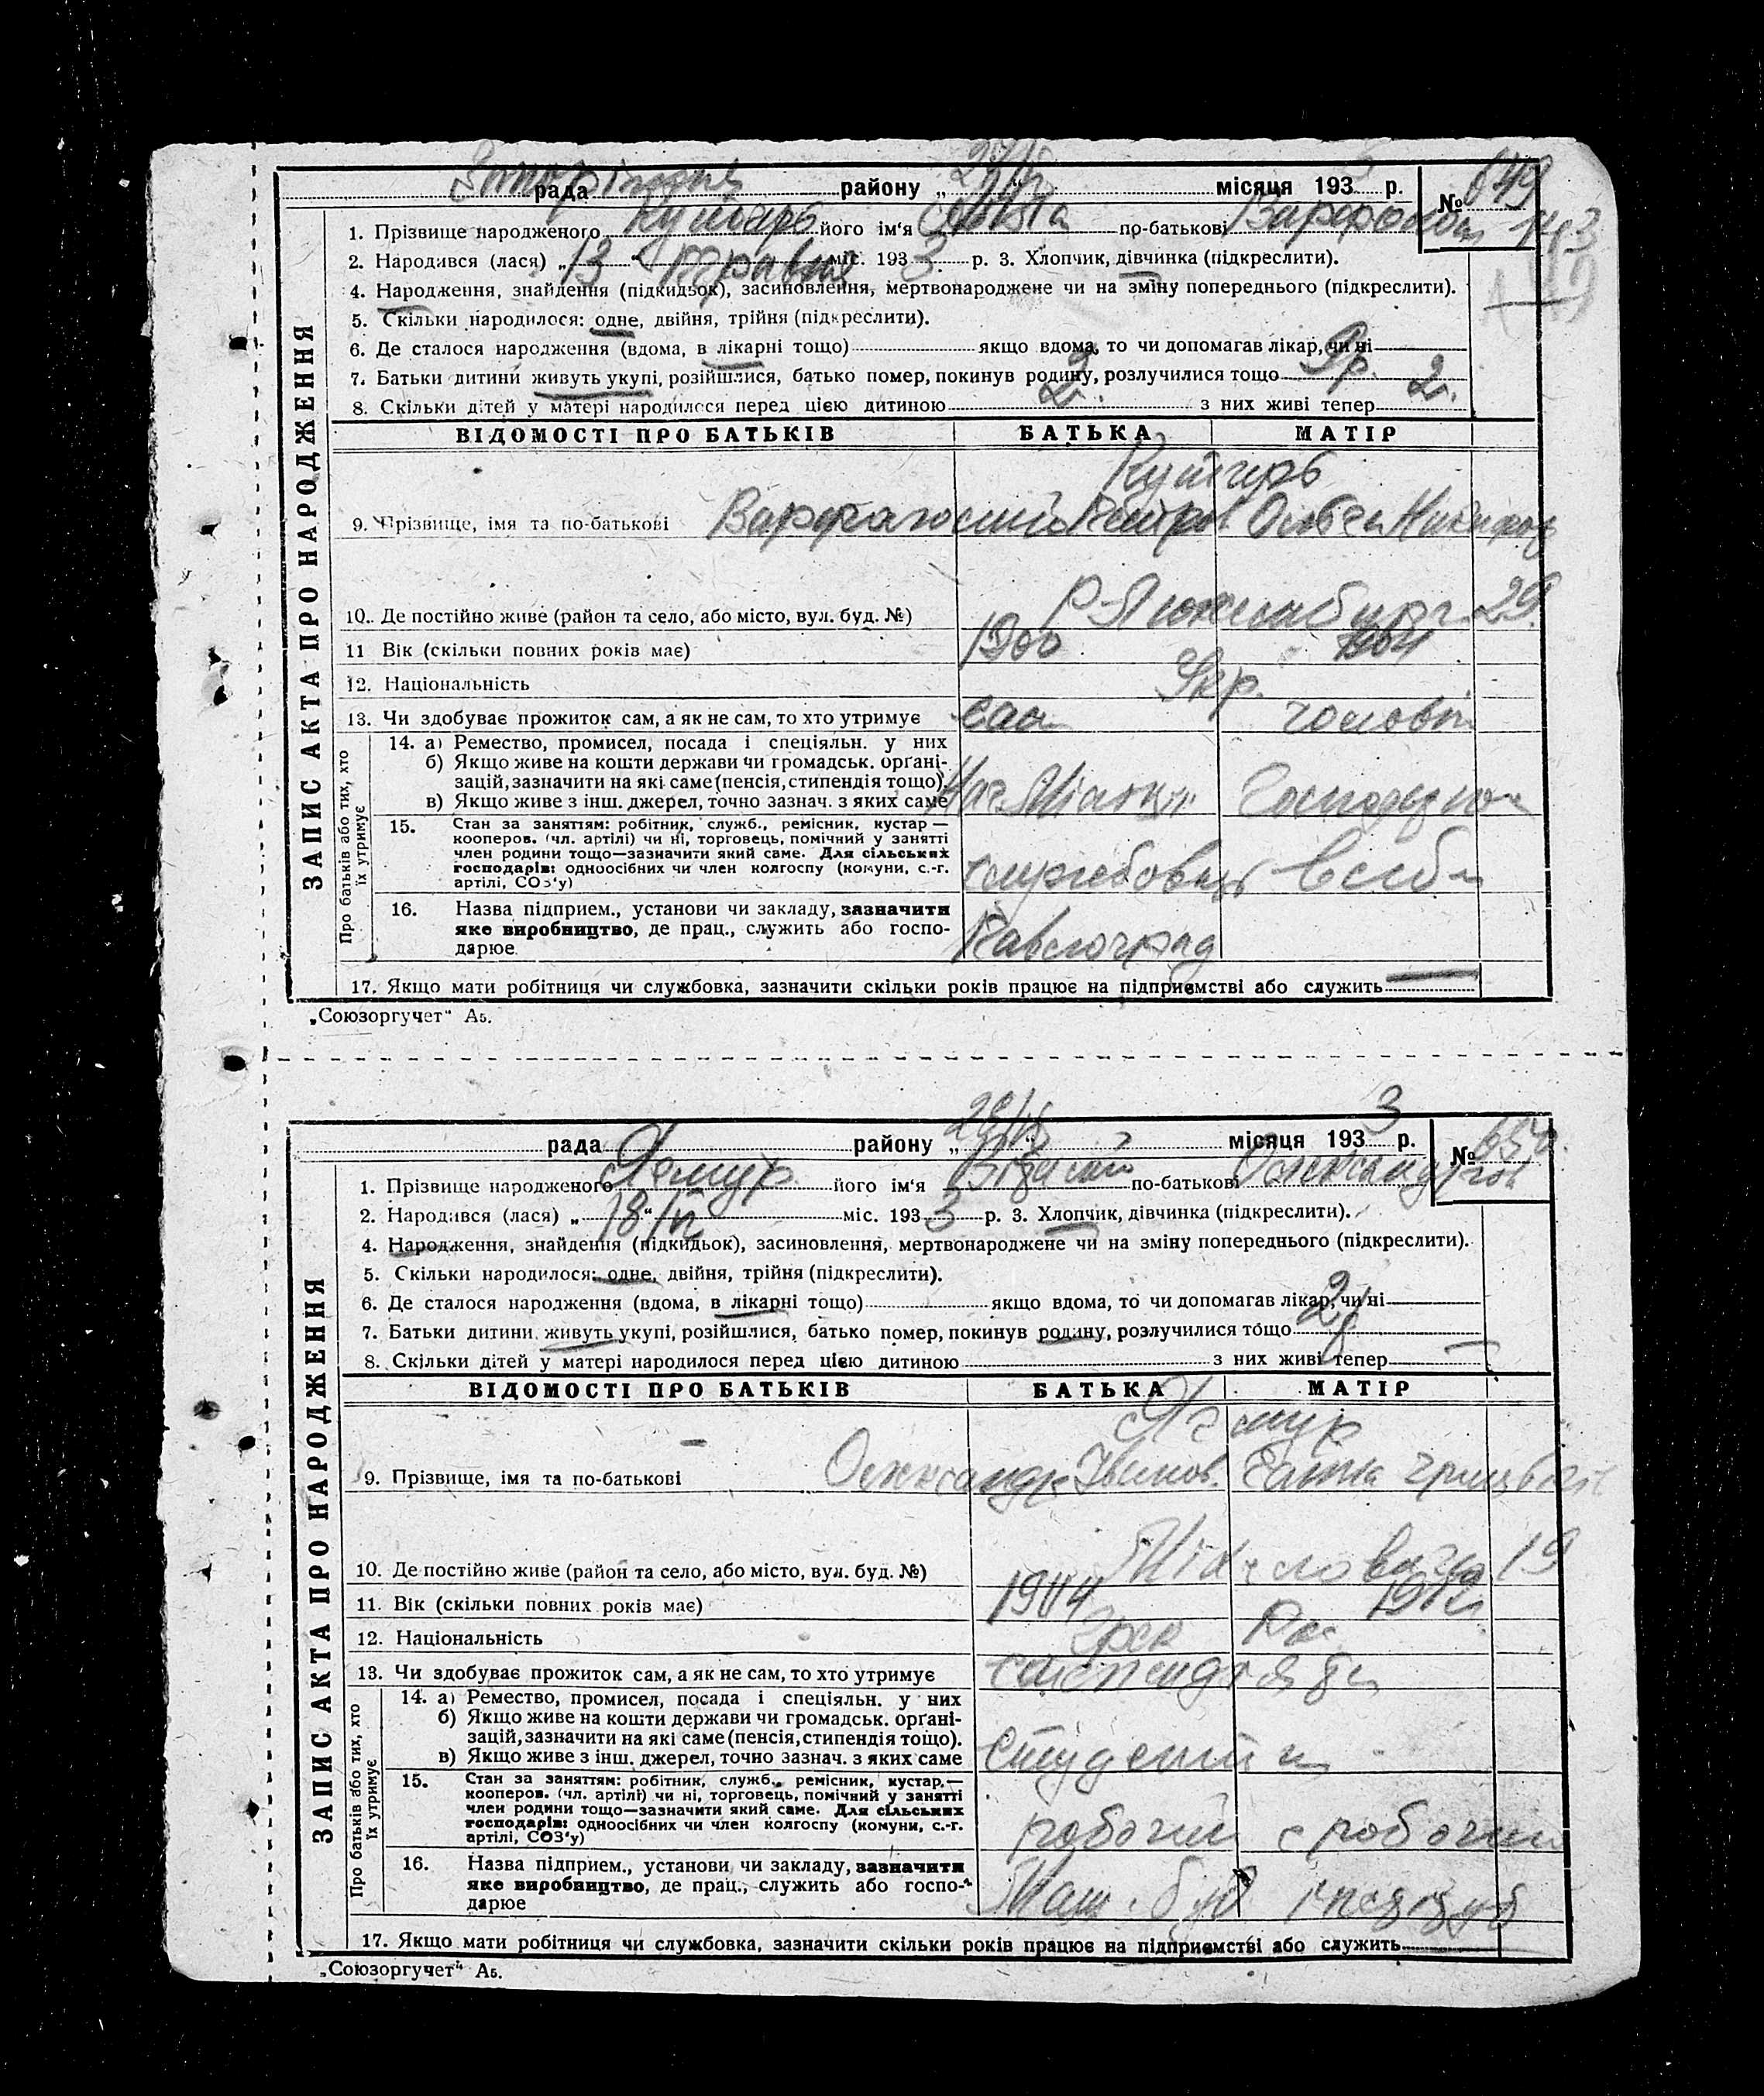 рада району „ “ місяця 193 р. № 649
1. Прізвище народженого Кушнарь його ім'я по-батькові
2. Народився (лася) „ 13 “ Травня міс. 193 3 р. 3. Хлопчик, дівчинка (підкреслити).
4. Народження, знайдення (підкидьок), засиновлення, мертвонароджене чи на зміну попереднього (підкреслити).
5. Скільки народилося: одне, двійня, трійня (підкреслити).
6. Де сталося народження (вдома, в лікарні тощо) якщо вдома, то чи допомагав лікар, чи ні
7. Батьки дитини живуть укупі, розійшлися, батько помер, покинув родину, розлучилися тощо
8. Скільки дітей у матері народилося перед цією дитиною 2. з них живі тепер 2.
ЗАПИС АКТА ПРО НАРОДЖЕННЯ
ВІДОМОСТІ ПРО БАТЬКІВ БАТЬКА МАТІР
9. Прізвище, імя та по-батькові
10. Де постійно живе (район та село, або місто, вул. буд. №) Р. Люксембург 29.
11 Вік (скільки повних років має) 1900 1904
12. Національність Укр.
13. Чи здобуває прожиток сам, а як не сам, то хто утримує сам чоловік
Про батьків або тих, хто їх утримує
14. а) Ремество, промисел, посада і спеціяльн. у них
б) Якщо живе на кошти держави чи громадськ. орґані-
зацій, зазначити на які саме (пенсія, стипендія тощо).
в) Якщо живе з інш. джерел, точно зазнач. з яких саме
15. Стан за заняттям: робітник, служб., ремісник, кустар —
кооперов. (чл. артілі) чи ні, торговець, помічний у занятті
член родини тощо—зазначити який саме. Для сільських
господарів: одноосібних чи член колгоспу (комуни, с.-г.
артілі, СОЗ'у) службовець
16. Назва підприєм., установи чи закладу, зазначити
яке виробництво, де прац., служить або госпо-
дарює. Павлоград
17. Якщо мати робітниця чи службовка, зазначити скільки років працює на підприємстві або служить
„Союзоргучет“ А5.
рада району „ “ місяця 193 3 р. № 650.
1. Прізвище народженого його ім'я по-батькові
2. Народився (лася) „ 18/IV “ міс. 193 3 р. 3. Хлопчик, дівчинка (підкреслити).
4. Народження, знайдення (підкидьок), засиновлення, мертвонароджене чи на зміну попереднього (підкреслити).
5. Скільки народилося: одне, двійня, трійня (підкреслити).
6. Де сталося народження (вдома, в лікарні тощо) якщо вдома, то чи допомагав лікар, чи ні
7. Батьки дитини живуть укупі, розійшлися, батько помер, покинув родину, розлучилися тощо
8. Скільки дітей у матері народилося перед цією дитиною з них живі тепер —
ЗАПИС АКТА ПРО НАРОДЖЕННЯ
ВІДОМОСТІ ПРО БАТЬКІВ БАТЬКА МАТІР
9. Прізвище, імя та по-батькові Олександр Іванов.
10. Де постійно живе (район та село, або місто, вул. буд. №) 19
11. Вік (скільки повних років має) 1904 1912
12. Національність Рос
13. Чи здобуває прожиток сам, а як не сам, то хто утримує стипендія
Про батьків або тих, хто їх утримує
14. а) Ремество, промисел, посада і спеціяльн. у них
б) Якщо живе на кошти держави чи громадськ. орґані-
зацій, зазначити на які саме (пенсія, стипендія тощо).
в) Якщо живе з інш. джерел, точно зазнач. з яких саме студенти
15. Стан за заняттям: робітник, служб., ремісник, кустар.—
кооперов. (чл. артілі) чи ні, торговець, помічний у занятті
член родини тощо—зазначити який саме. Для сільських
господарів: одноосібних чи член колгоспу (комуни, с.-г.
артілі, СОЗ'у)
16. Назва підприєм., установи чи закладу, зазначити
яке виробництво, де прац., служить або госпо-
дарює Маш. буд
17. Якщо мати робітниця чи службовка, зазначити скільки років працює на підприємстві або служить
„Союзоргучет“ А5.